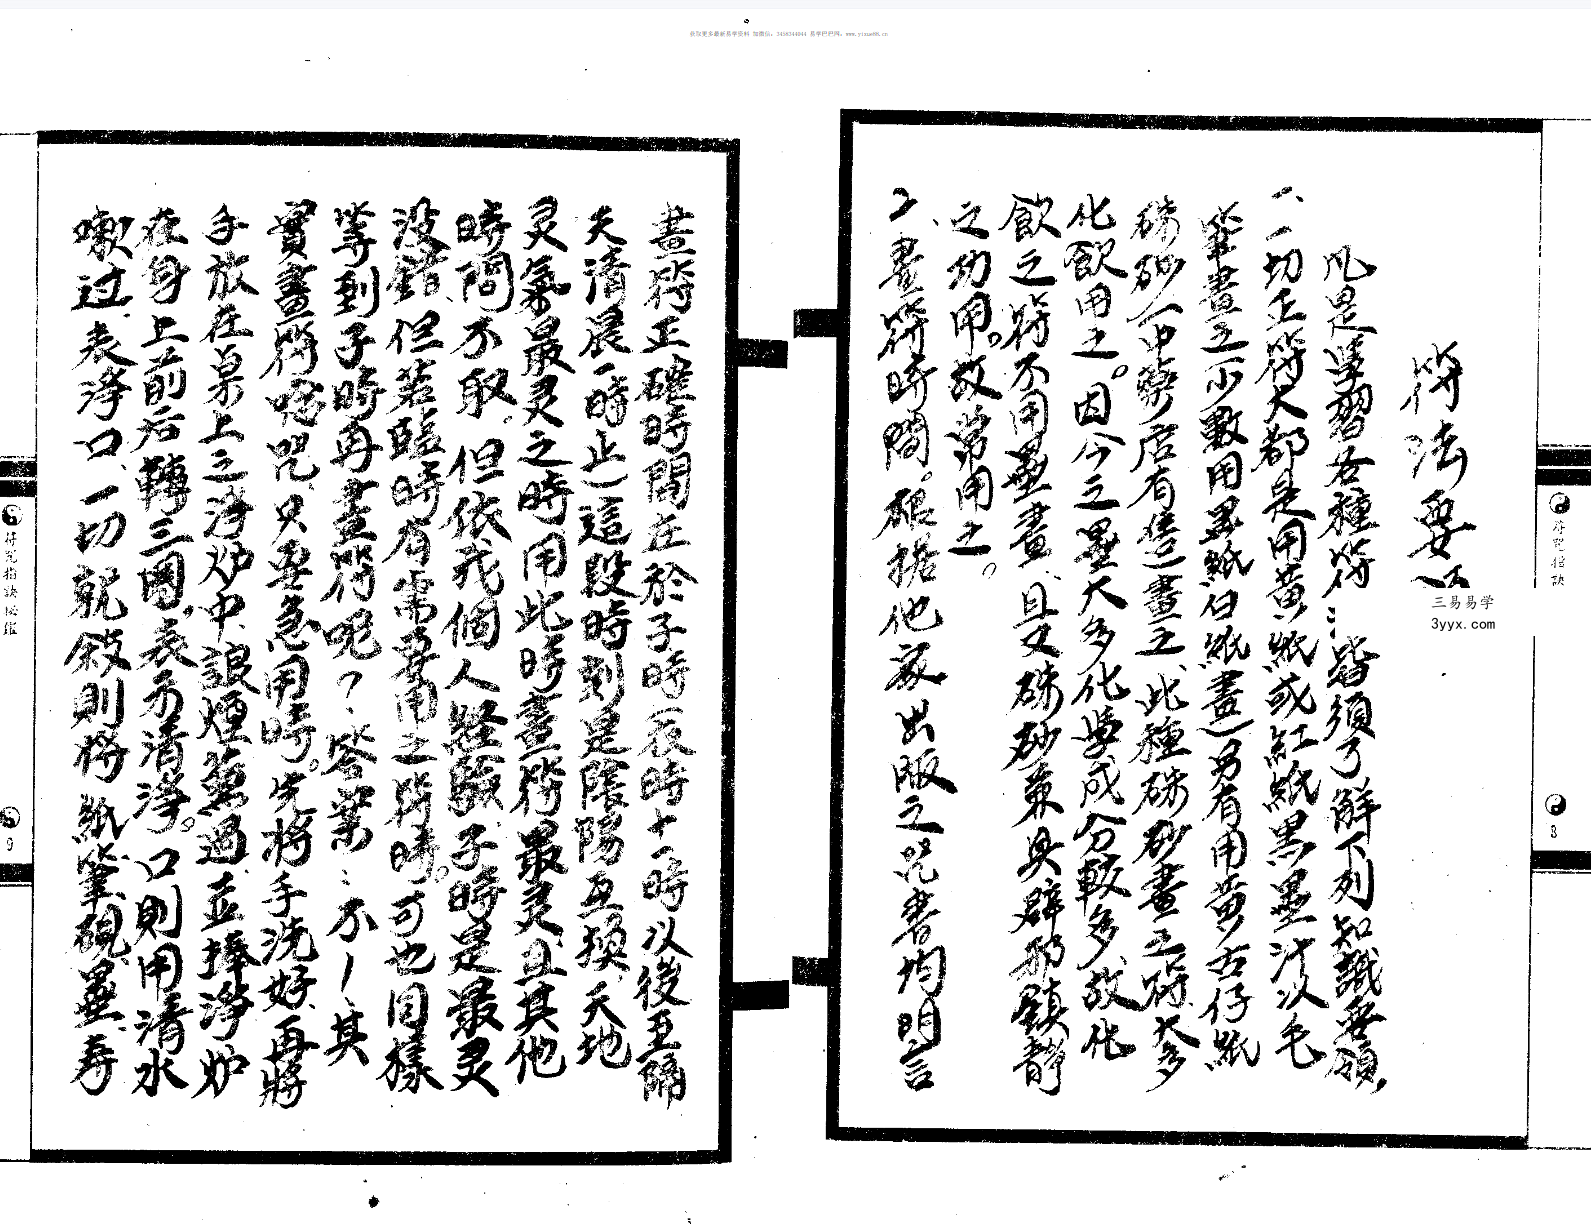 获取更多最新易学资料 加微信：3456344044 易学巴巴网：www.yixue88.cn
符法要
三易易学
3yyx.com
凡是學習各種符…皆須了解下列知識要領，
一、一切正符大都是用黃紙或紅紙黑墨汁以毛
筆畫之（少數用黑紙白紙畫）另有用黃古仔紙
硃砂（中藥店有售）畫之、此種硃砂畫之符、大多
化飲用之。因今之墨大多化學成分較多、故化
飲之符不用墨畫、且又硃砂兼具辟邪鎮靜
之功用。故常用之。
2、畫符時間。根據他家出版之咒書均明言
符咒指訣
8
畫符正確時間在於子時（夜時十一時以後至隔
天清晨一時止）這段時刻是陰陽互換、天地
灵氣最灵之時用此時畫符最灵、且其他
時間不取、但依我個人經驗、子時是最灵
没錯、但若臨時有需要用之符時。可也同樣
等到子時再畫符呢？、答案：不！其
實畫符唸咒、只要急用時。先將手洗好、再將
手放在桌上之淨炉中、讓煙薰過、並捧淨炉
在身上前后轉三圈、表示清淨。口則用清水
嗽过、表淨口、一切就敘、則將紙筆硯墨壽
符咒指訣秘鑑
9